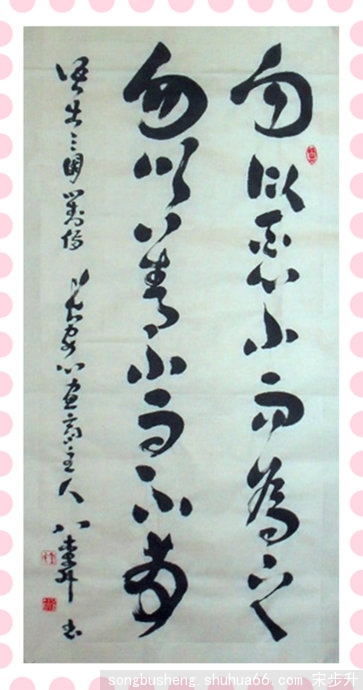 勿以惡小而為之
勿以善小而不為
三国 主人 书
songbusheng.shuhua66.com 宋步升